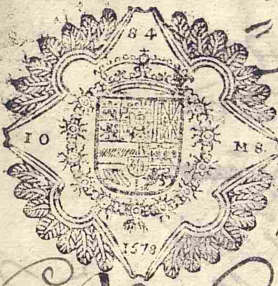 84
10 MS
1578